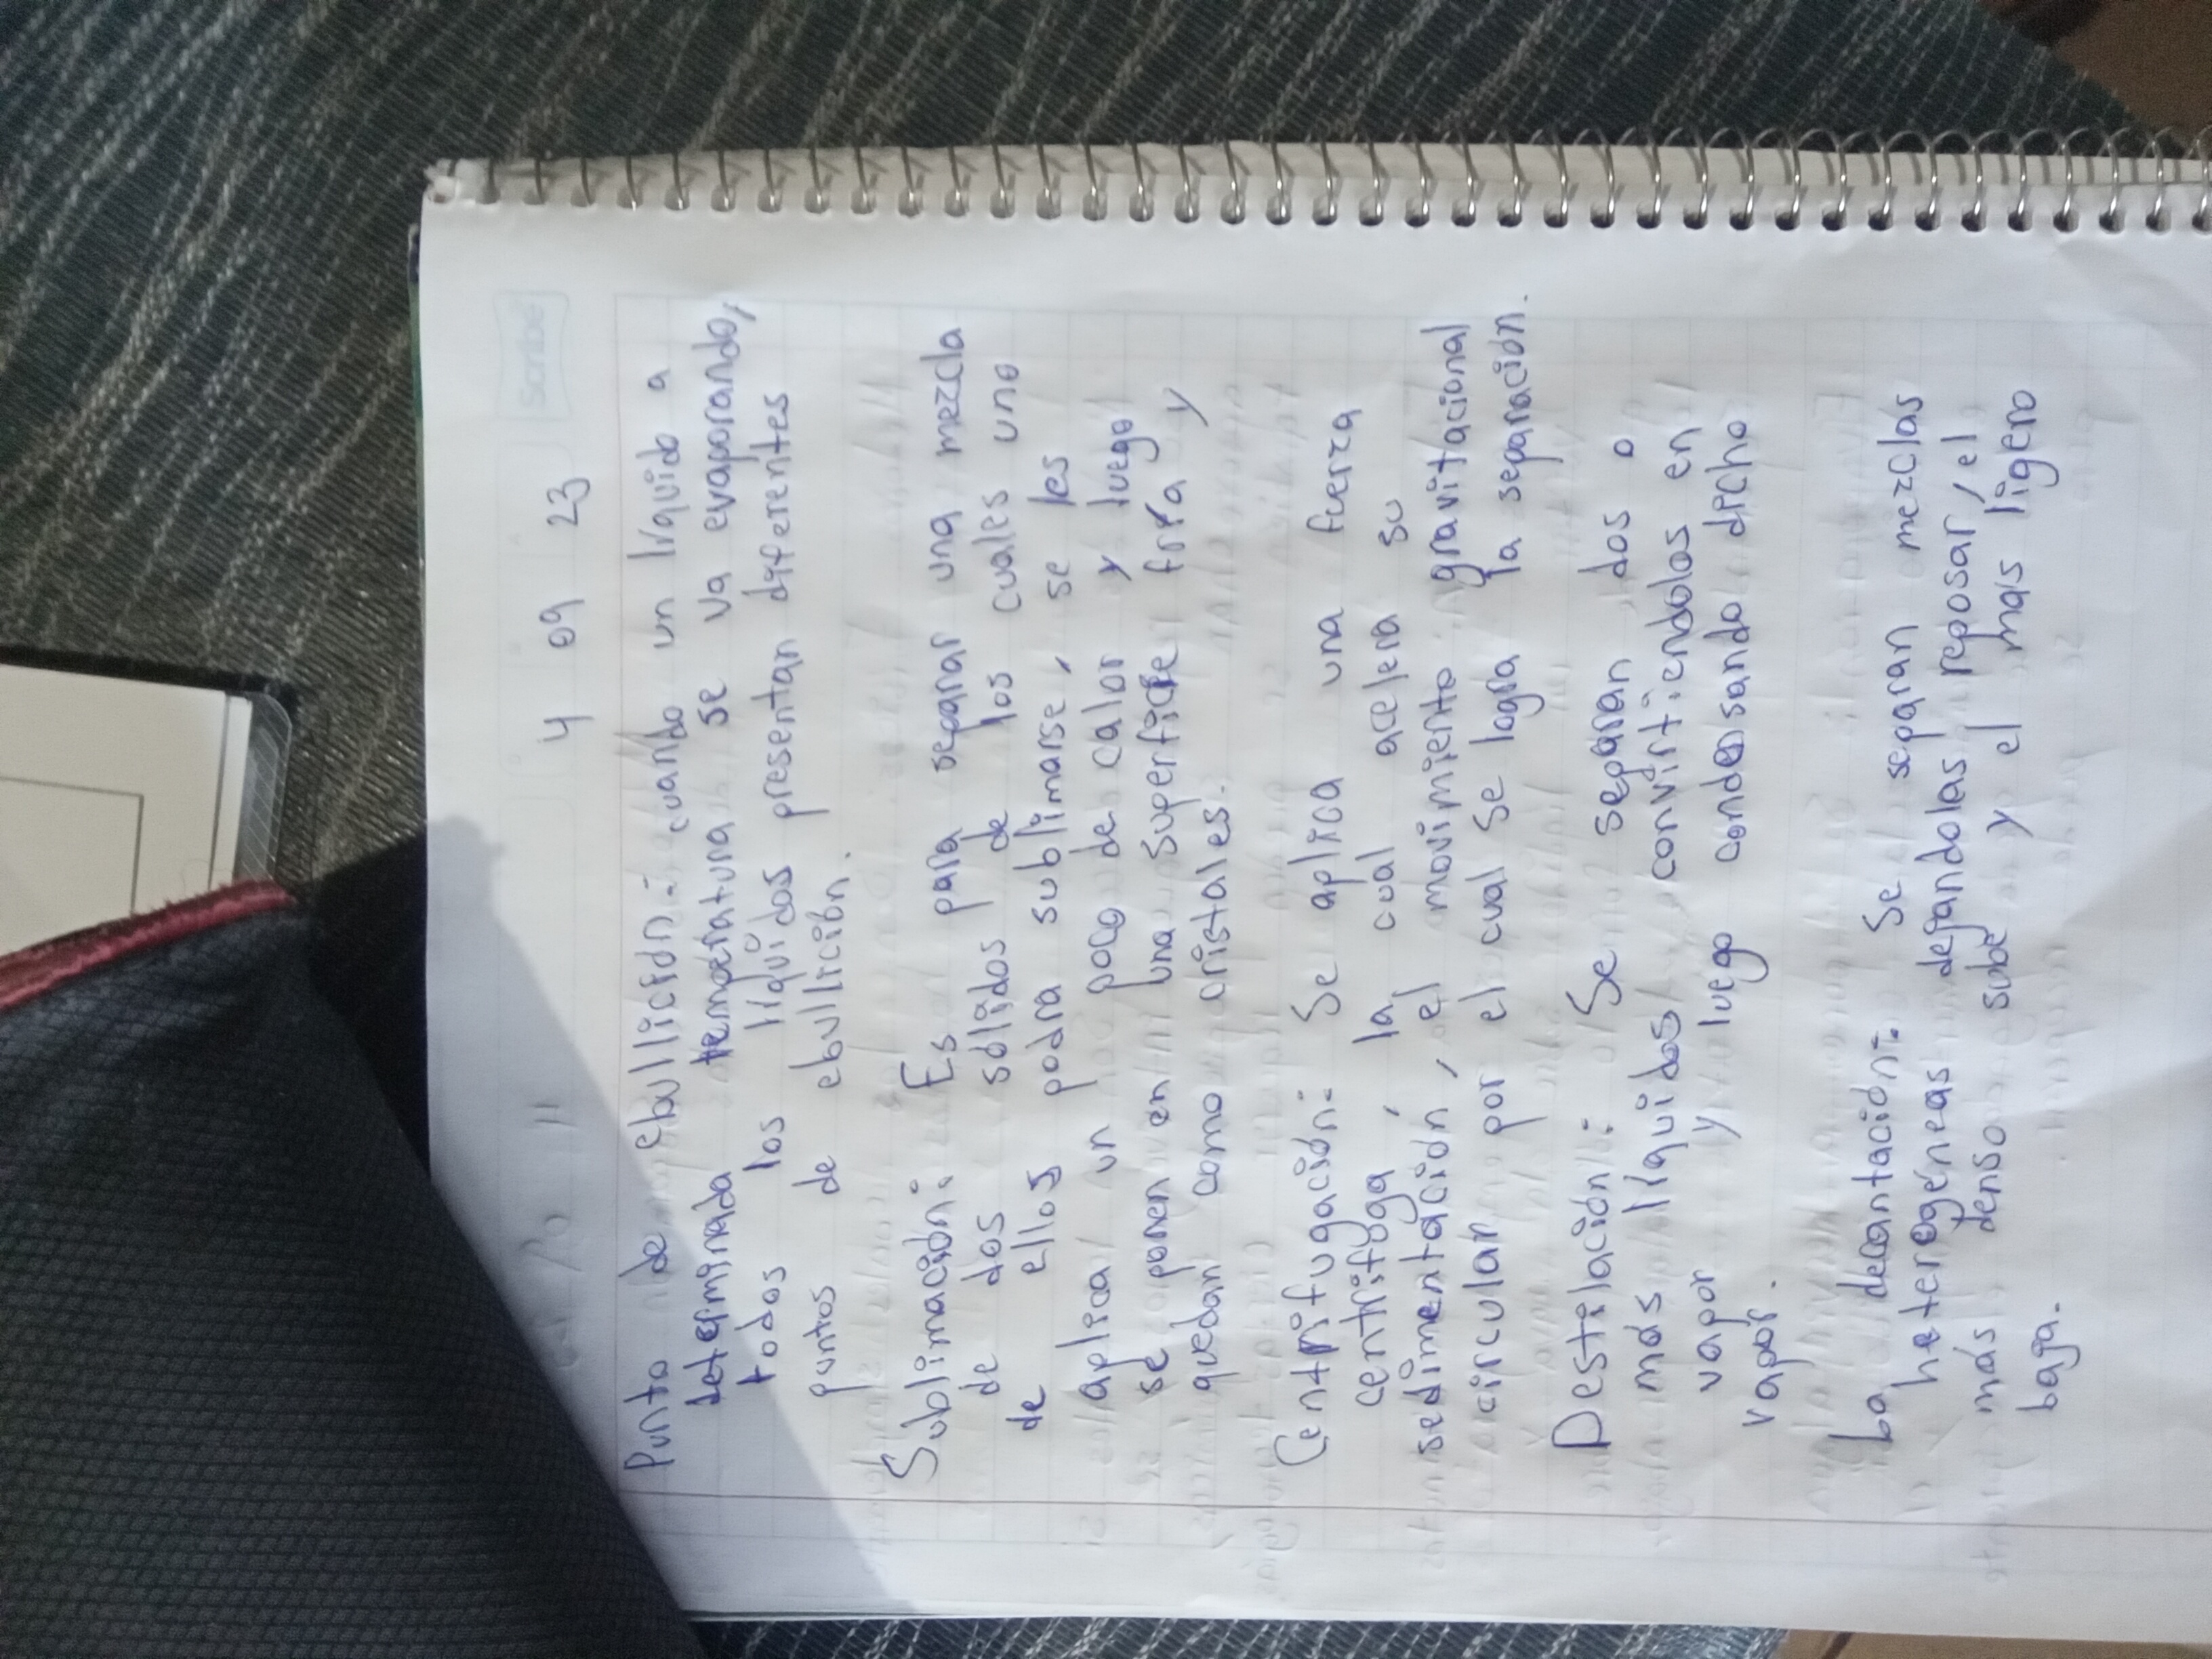 Scribe
4 09 23
Punto de ebullición: cuando un líquido a
determinada temperatura se va evaporando,
todos los líquidos presentan diferentes
puntos de ebullición.
Sublimación: Es para separar una mezcla
de dos sólidos de los cuales uno
de ellos podra sublimarse, se les
aplica un poco de calor y luego
se ponen en una superficie fría y
quedan como cristales.
Centrifugación: Se aplica una fuerza
centrifuga, la cual acelera su
sedimentación, el movimiento gravitacional
circular por el cual se logra la separación.
Destilación: Se separan dos o
más líquidos convirtiendolos en
vapor y luego condensando dicho
vapor.
La decantación: Se separan mezclas
heterogéneas dejandolas reposar, el
más denso sube y el mas ligero
baja.